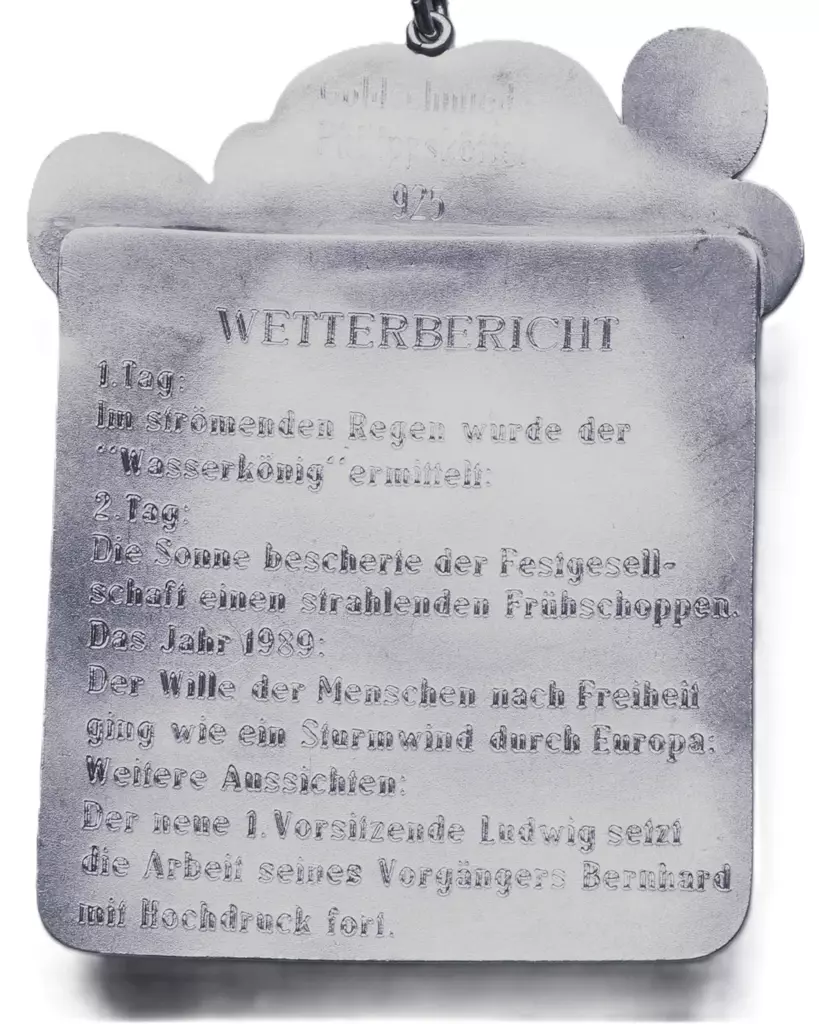 Goldschmied
925
WETTERBERICHT
1.Tag:
Im strömenden Regen wurde der
"Wasserkönig" ermittelt:
2.Tag:
Die Sonne bescherte der Festgesell-
schaft einen strahlenden Frühschoppen.
Das Jahr 1989:
Der Wille der Menschen nach Freiheit
ging wie ein Sturmwind durch Europa:
Weitere Aussichten:
Der neue 1.Vorsitzende Ludwig setzt
die Arbeit seines Vorgängers Bernhard
mit Hochdruck fort.